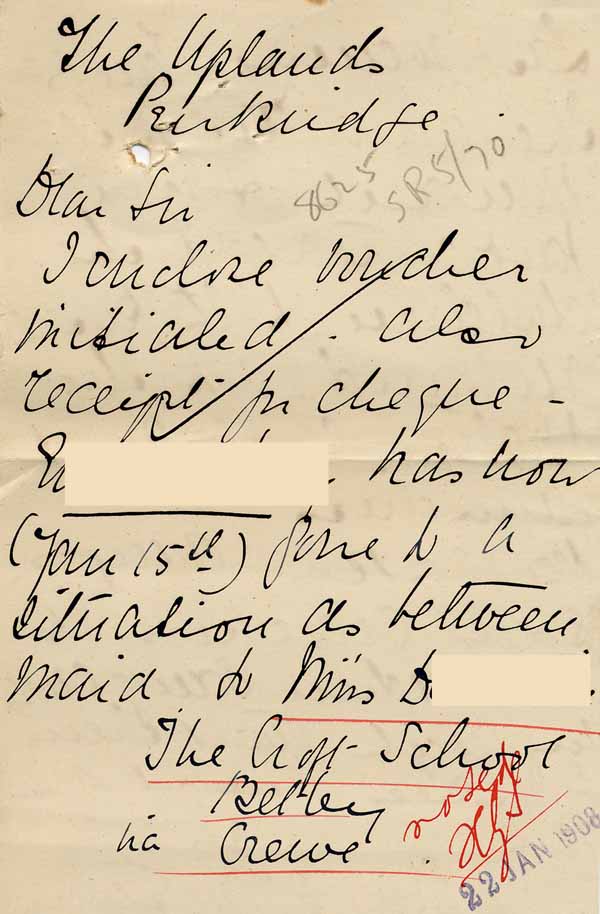 The Uplands
Penkridge.
8625
SR.5/70
Dear Sir
I enclose voucher
initialed. also
receipt for cheque -
has now
(Jan 15th) gone to a
situation as between
maid to Miss D
The Croft School
Betley
via Crewe.
noted
22 JAN 1908